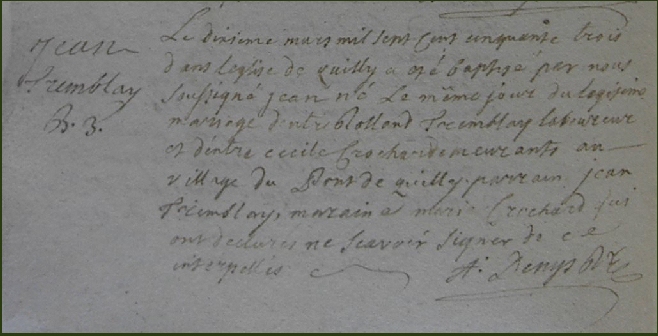 Jean
Tremblay
B. 3.
Le dixieme mars mil sept cent cinquante trois
dans leglise de quilly a eté baptisé par nous
soussigné jean né le même jour du legitime
mariage d'entre Rolland Tremblay laboureur
et d'entre cecile Crochard demeurants au
village du Pont de quilly. parrain jean
Tremblay, maraine marie Crochard qui
ont declarés ne scavoir signer de ce
interpellés
A. Denys